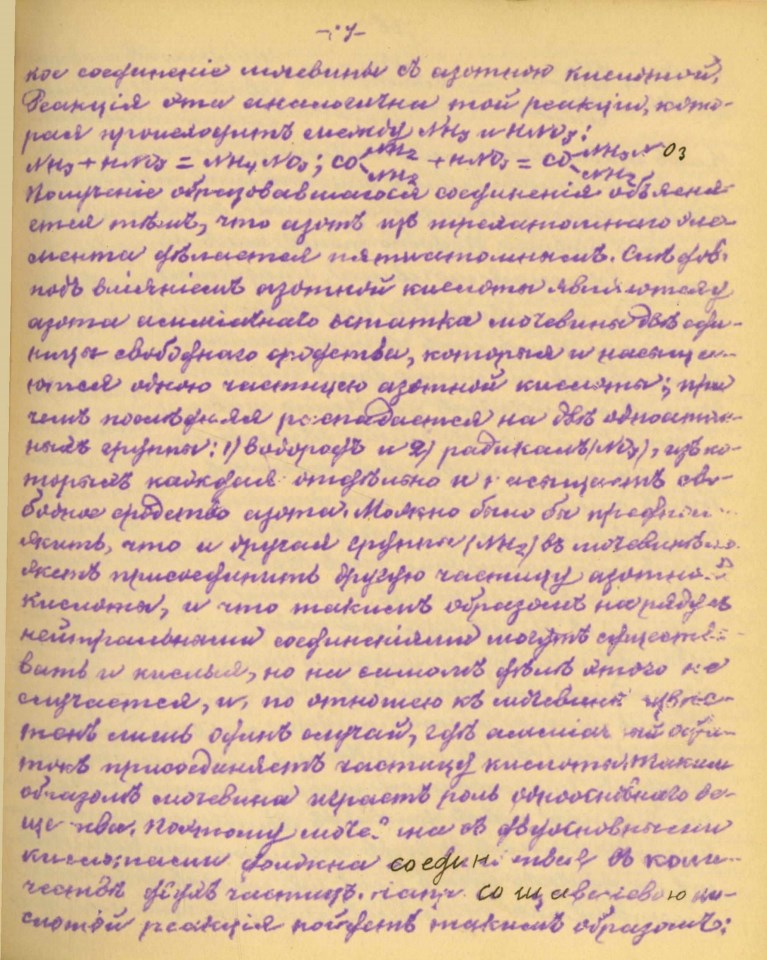 -7-
кое соединенiе мочевины съ азотною кислотой.
Реакцiя эта аналогична той реакцiи, кото-
рая происходитъ между NH3 и HNO3:
NH3 + HNO3 = NH4NO3; CO<NH2 NH2 + HNO3 = CO<NH3NO3 NH2
Полученiе образовавшагося соединенiя объясня-
ется тѣмъ, что азотъ изъ трехатомнаго эле-
мента дѣлается пятиатомнымъ. Слѣдов.
подъ влiянiемъ азотной кислоты являются у
азота аммiачнаго остатка мочевины двѣ еди-
ницы свободнаго сродства, которыя и насыща-
ются одною частицею азотной кислоты; при
чемъ послѣдняя распадается на двѣ одноатом-
ныхъ группы: 1) водородъ и 2) радикалъ (NO3), изъ ко-
торыхъ каждая отдѣльно насыщаетъ сво-
бодное сродство азота. Можно было бы предполо-
жить, что и другая группа (NH2) въ мочевинѣ мо-
жетъ присоединить другую частицу азотной
кислоты, и что такимъ образомъ наряду съ
нейтральными соединенiями могутъ существо-
вать и кислыя, но на самомъ дѣлѣ этого не
случается, и, по отношею къ мочевинѣ извѣс-
тенъ лишь одинъ случай, гдѣ аммiачный оста-
токъ присоединяетъ частицу кислоты. Такимъ
образомъ мочевина играетъ роль одноосновнаго ве-
щества. Поэтому мочевина съ двуосновными
кислотами должна соедин въ коли-
чествѣ двухъ частицъ. Напр. со щавелевою ки-
слотой реакцiя пойдетъ такимъ образомъ: